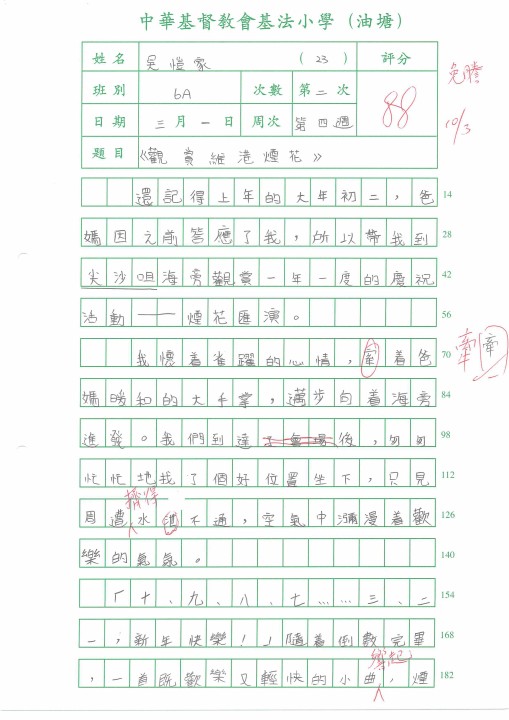 中華基督教會基法小學（油塘）
姓名 吳愷家 (23) 評分
班別 6A 次數 第二次 88 免謄
日期 三月一日 周次 第四週 10/3
題目 《觀賞維港煙花》
還記得上年的大年初二，爸 14
媽因之前答應了我，所以帶我到 28
尖沙咀海旁觀賞一年一度的慶祝 42
活動——煙花匯演。 56
我懷着雀躍的心情，牽着爸 70 牽
媽暖和的大手掌，邁步向着海旁 84
進發。我們到達後，匆匆 98
忙忙地找了個好位置坐下，只見 112
擠得
周遭水洩不通，空氣中瀰漫着歡 126
樂的氣氛。 140
「十、九、八、七……三、二 154
一，新年快樂！」隨着倒數完畢 168
響起
，一首既歡樂又輕快的小曲，煙 182